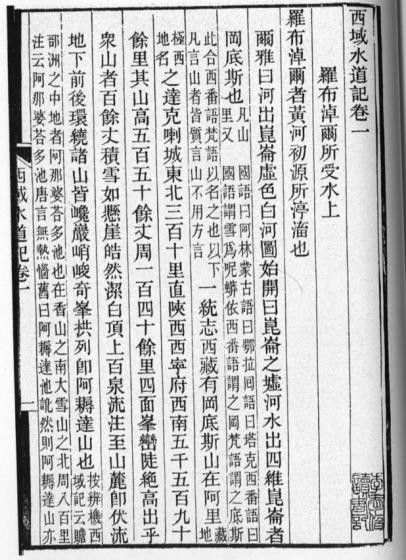 西域水道記卷一
羅布淖爾所受水上
羅布淖爾者黃河初源所渟滀也
爾雅曰河出崑崙虛色白河圖始開曰崑崙之墟河水出四維崑崙者
岡底斯也凡山 國語曰阿林蒙古語曰鄂拉回語曰塔克西番語曰
里又 國語謂雪爲呢蟒依西番語謂之岡梵語謂之底斯
此合西番語梵語以名之也以下
凡言山者皆質言山不用方言
一統志西藏有岡底斯山在阿里藏地
極西地名之達克喇城東北三百十里直陝西西寧府西南五千五百九十
餘里其山高五百五十餘丈周一百四十餘里四面峯巒陡絶高出乎
衆山者百餘丈積雪如懸崖皓然潔白頂上百泉流注至山麓卽伏流
地下前後環繞諸山皆巉嚴峭峻奇峯拱列卽阿耨達山也按辨機西域記云贍
部洲之中地者阿那婆荅多池也在香山之南大雪山之北周八百里
注云阿那婆荅多池唐言無熱惱舊曰阿耨達池訛然則阿耨達山亦
西域水道記卷一
一